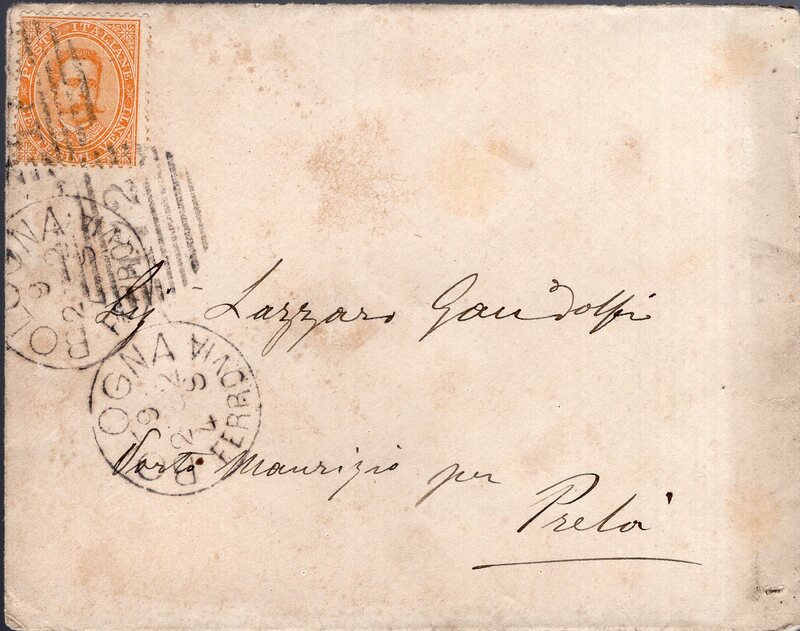 POSTE ITALIANE
BOLOGNA
FERROVIA
Sig Lazzaro Gandolfi
BOLOGNA
FERROVIA
Porto Maurizio per
Prelà